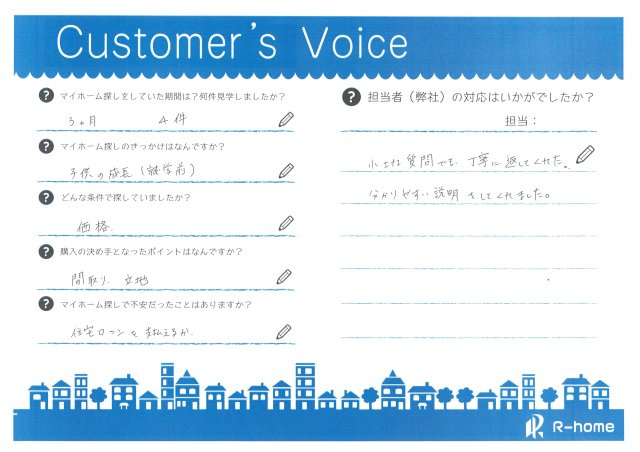 Customer's Voice
? マイホーム探しをしていた期間は？何件見学しましたか？
3ヵ月 4件
? マイホーム探しのきっかけはなんですか？
子供の成長（就学前）
? どんな条件で探していましたか？
価格
? 購入の決め手となったポイントはなんですか？
間取り、立地
? マイホーム探しで不安だったことはありますか？
住宅ローンを支払えるか
? 担当者（弊社）の対応はいかがでしたか？
担当：
小さな質問でも、丁寧に返してくれた。
分かりやすい説明をしてくれました。
R-home